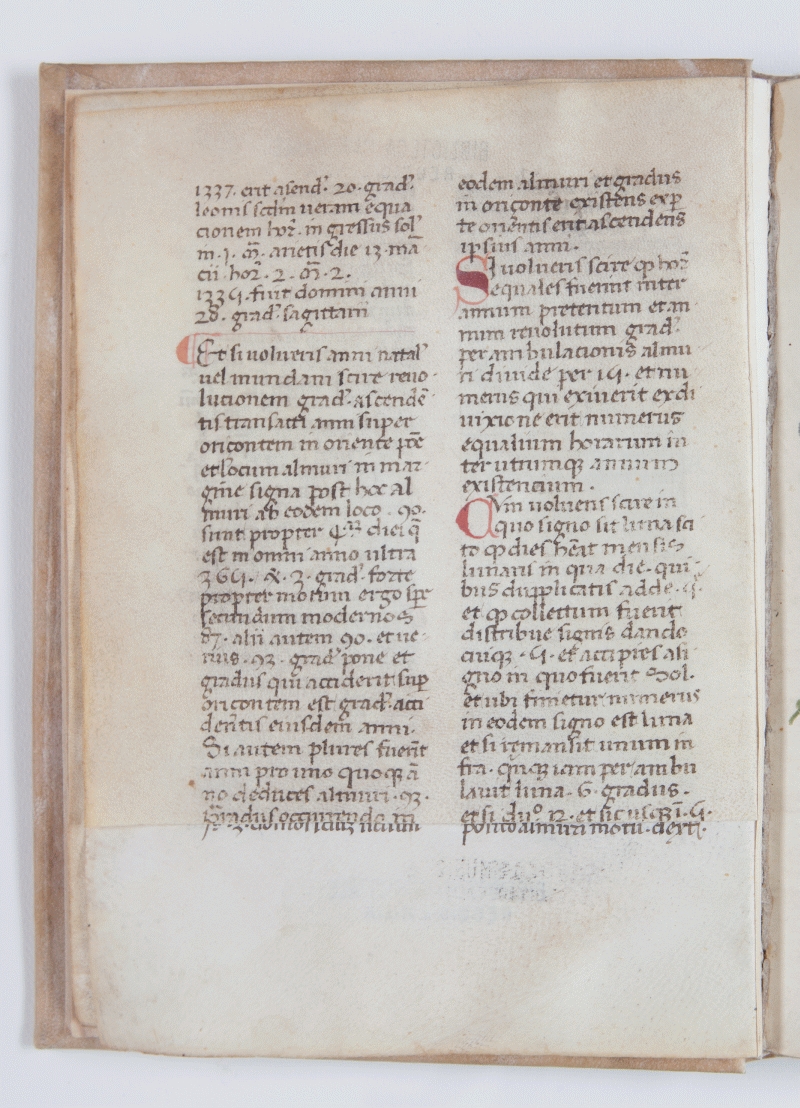 1337. erit asend. 20. grad.
leonis scdm veram equa
cionem hor. in gressus sol
in .1. m. arietis die 13 ma
cii hor. 2. m. 2.
fuit domini anni
28. grad. sagittarii
Et si volueris anni natal
vel mundani scire revo
lucionem grad. ascende
tis transacti anni super
oricontem in oriente pte
et locum almuri in mar
gine signa post hoc al
muri ab eodem loco. 90.
sunt propter diei q
est in omni anno ultra
365. &. grad. forte
propter motum ergo spr
secundum modernos
87. alii autem 90. et ve
rius. 93. grad pone et
gradus qui acciderit sup
oricontem est grad. acci
dentis eiusdem anni.
Si autem plures fuerit
anni pro uno quoq; a
no deduces almuri. 93.
gradus
eodem almuri et gradus
in oriconte existens exp
te orientis erit ascendens
ipsius anni.
Si volueris scire qp hor
e equales fuerint inter
annum preteritum et an
num revolutum grad.
perambulacionis almu
ri divide per 15. et nu
merus qui exiverit ex di
vixione erit numerus
equalium horarum in
ter utrumq; annum
existencium.
Cum volueris scire in
quo signo sit luna sci
to qp dies heat mensis
lunaris in qua die. qui
bus dupplicatis adde. 5.
et qp collettum fuerit
distribue signis dando
cuiq;. 5. et accipies asi
gno in quo fuerit Sol.
et ubi finietur numerus
in eodem signo est luna
et si remansit unum in
fra. quiq; iam perambu
lavit luna. 6. gradus.
et si duo 12. et sic usq;